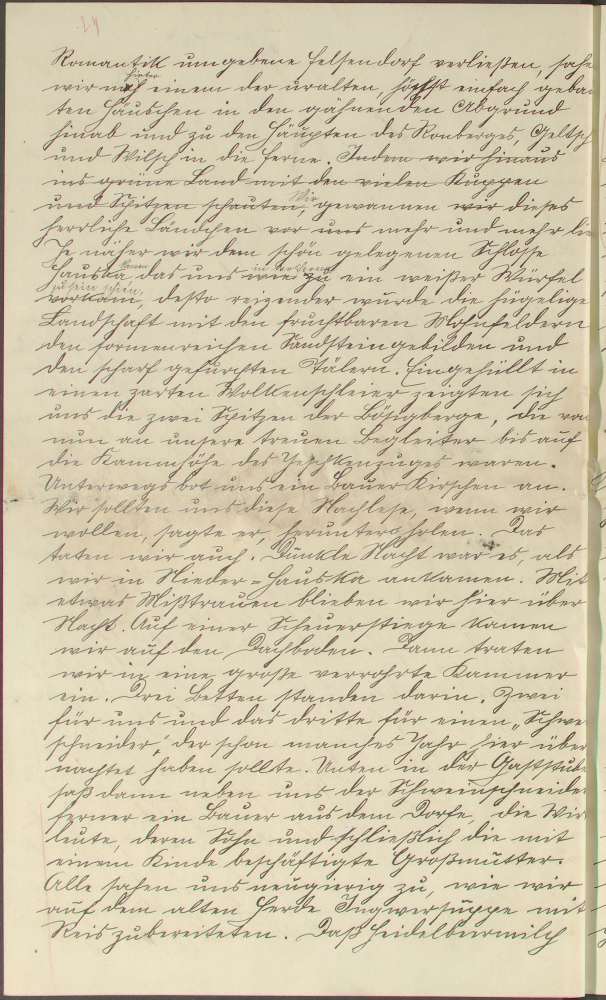 Romantik umgebene Felsendorf verließen, sahe
wir noch hinter einem der uralten, höchst einfach gebau
ten Häuschen in den gähnenden Abgrund
hinab und zu den Häuptern des Ronberges, Geltsch
und Wilsch in die Ferne. Indem wir hinaus
ins grüne Land mit den vielen Kuppen
und Spitzen schauten, Wir gewannen wir dieses
herrliche Ländchen vor uns mehr und mehr lie
Je näher wir dem schön gelegenen Schlosse
Hauska kamen das uns wie zu in der Ferne ein weißer Würfel
zu sein schien,
vorkam, desto reizender wurde die hügelige
Landschaft mit den fruchtbaren Mohnfeldern
den formenreichen Sandsteingebilden und
den scharf gefurchten Tälern. Eingehüllt in
einen zarten Wolkenschleier zeigten sich
uns die zwei Spitzen der Bösigberge, die von
nun an unsere treuen Begleiter bis auf
die Kammhöhe des Jeschkenzuges waren.
Unterwegs bot uns ein Bauer Kirschen an.
Wir sollten uns diese Nachlese, wenn wir
wollen, sagte er, herunter holen. Das
taten wir auch. Dunkle Nacht war es, als
wir in Nieder-Hauska ankamen. Mit
etwas Mißtrauen blieben wir hier über
Nacht. Auf einer Scheuerstiege kamen
wir auf den Dachboden. Dann traten
wir in eine große verrohrte Kammer
ein. Drei Betten standen darin. Zwei
für uns und das dritte für einen „Schwe
schneider", der schon manches Jahr hier über
nachtet haben sollte. Unten in der Gaststube
saß dann neben uns der Schweinschneider
ferner ein Bauer aus dem Dorfe, die Wir
leute, deren Sohn und schließlich die mit
einem Kinde beschäftigte Großmutter.
Alle sahen uns neugierig zu, wie wir
auf dem alten Herde Ingwersuppe mit
Reis zubereiteten. Daß Heidelbeermilch